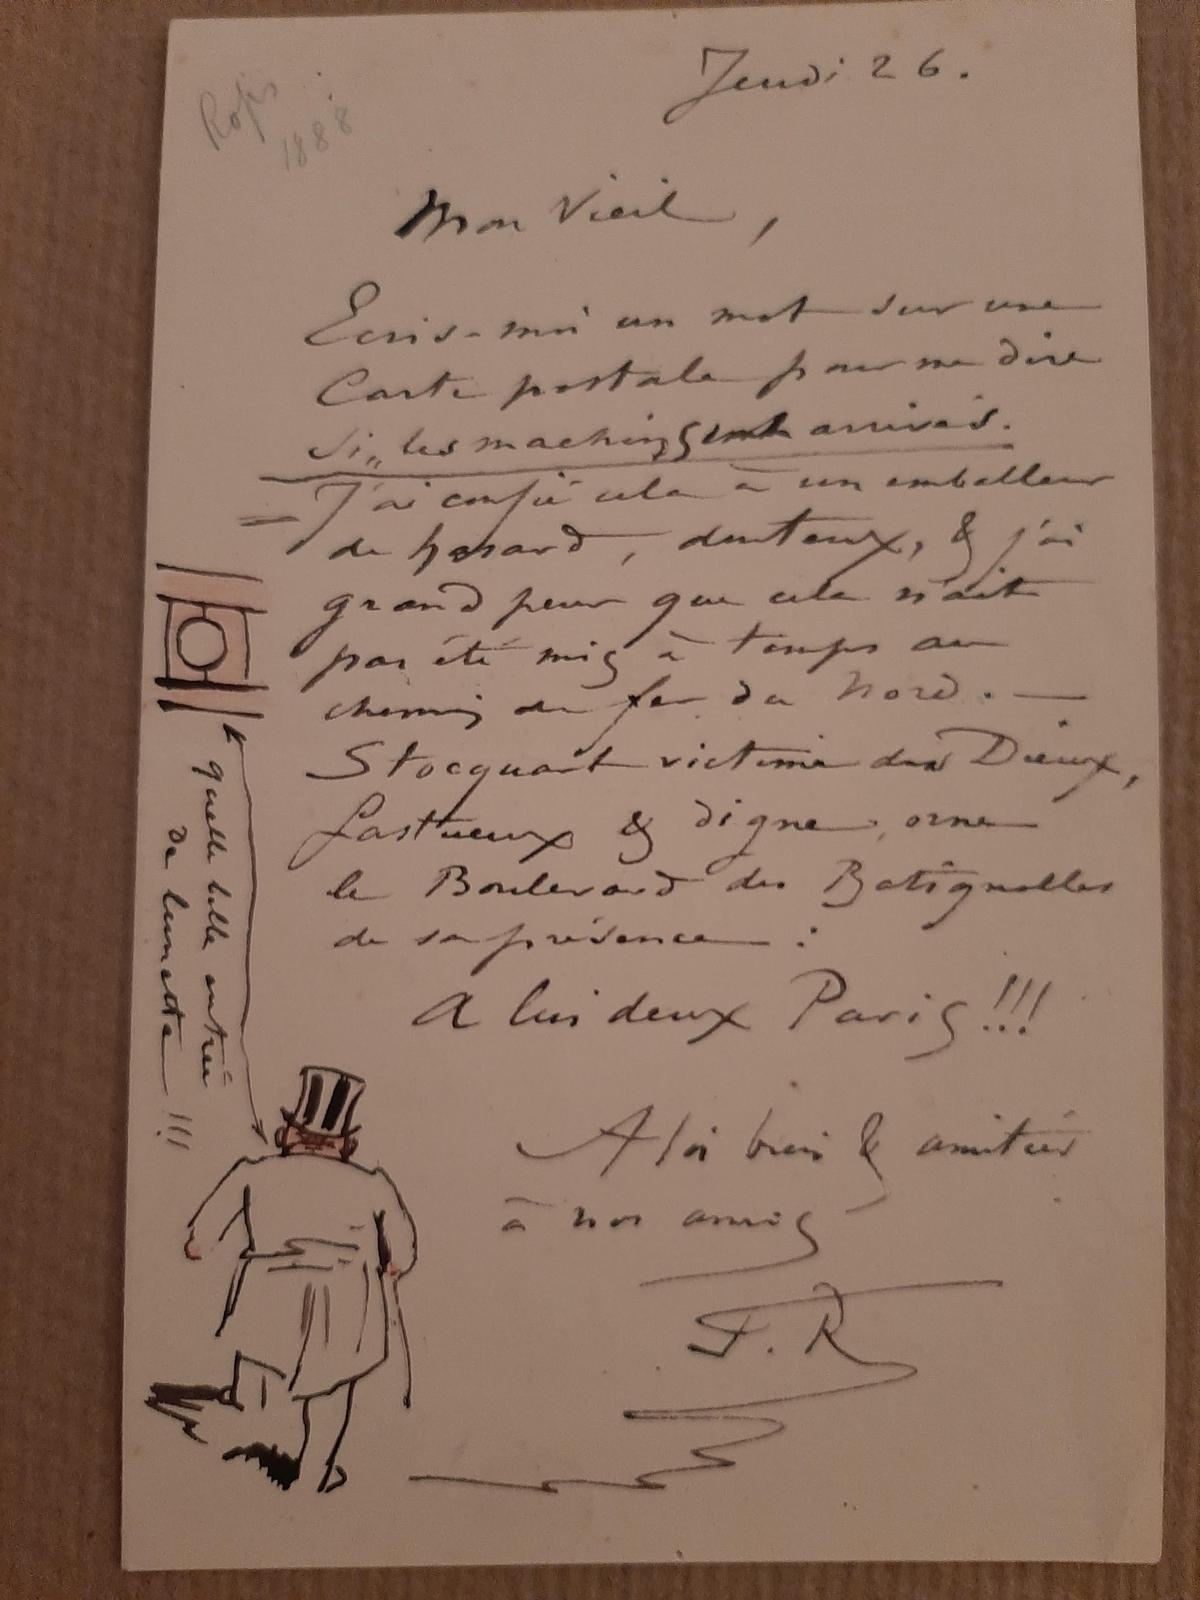 Jeudi 26.
Rops
1888
Mon Vieil,
Ecris-moi un mot sur une
Carte postale pour me dire
si „ les machins sont arrivés.
J'ai confié cela à un emballeur
de hasard, douteux, & j'ai
grand peur que cela n'ait
pas été mis à temps au
chemin de fer du Nord. —
Stocquart victime des Dieux,
fastueux & digne, orne
le Boulevard des Batignolles
de sa présence :
A lui deux Paris !!!
A toi bien & amitiés
à nos amis
F. R
quelle belle entrée
de lunette !!!